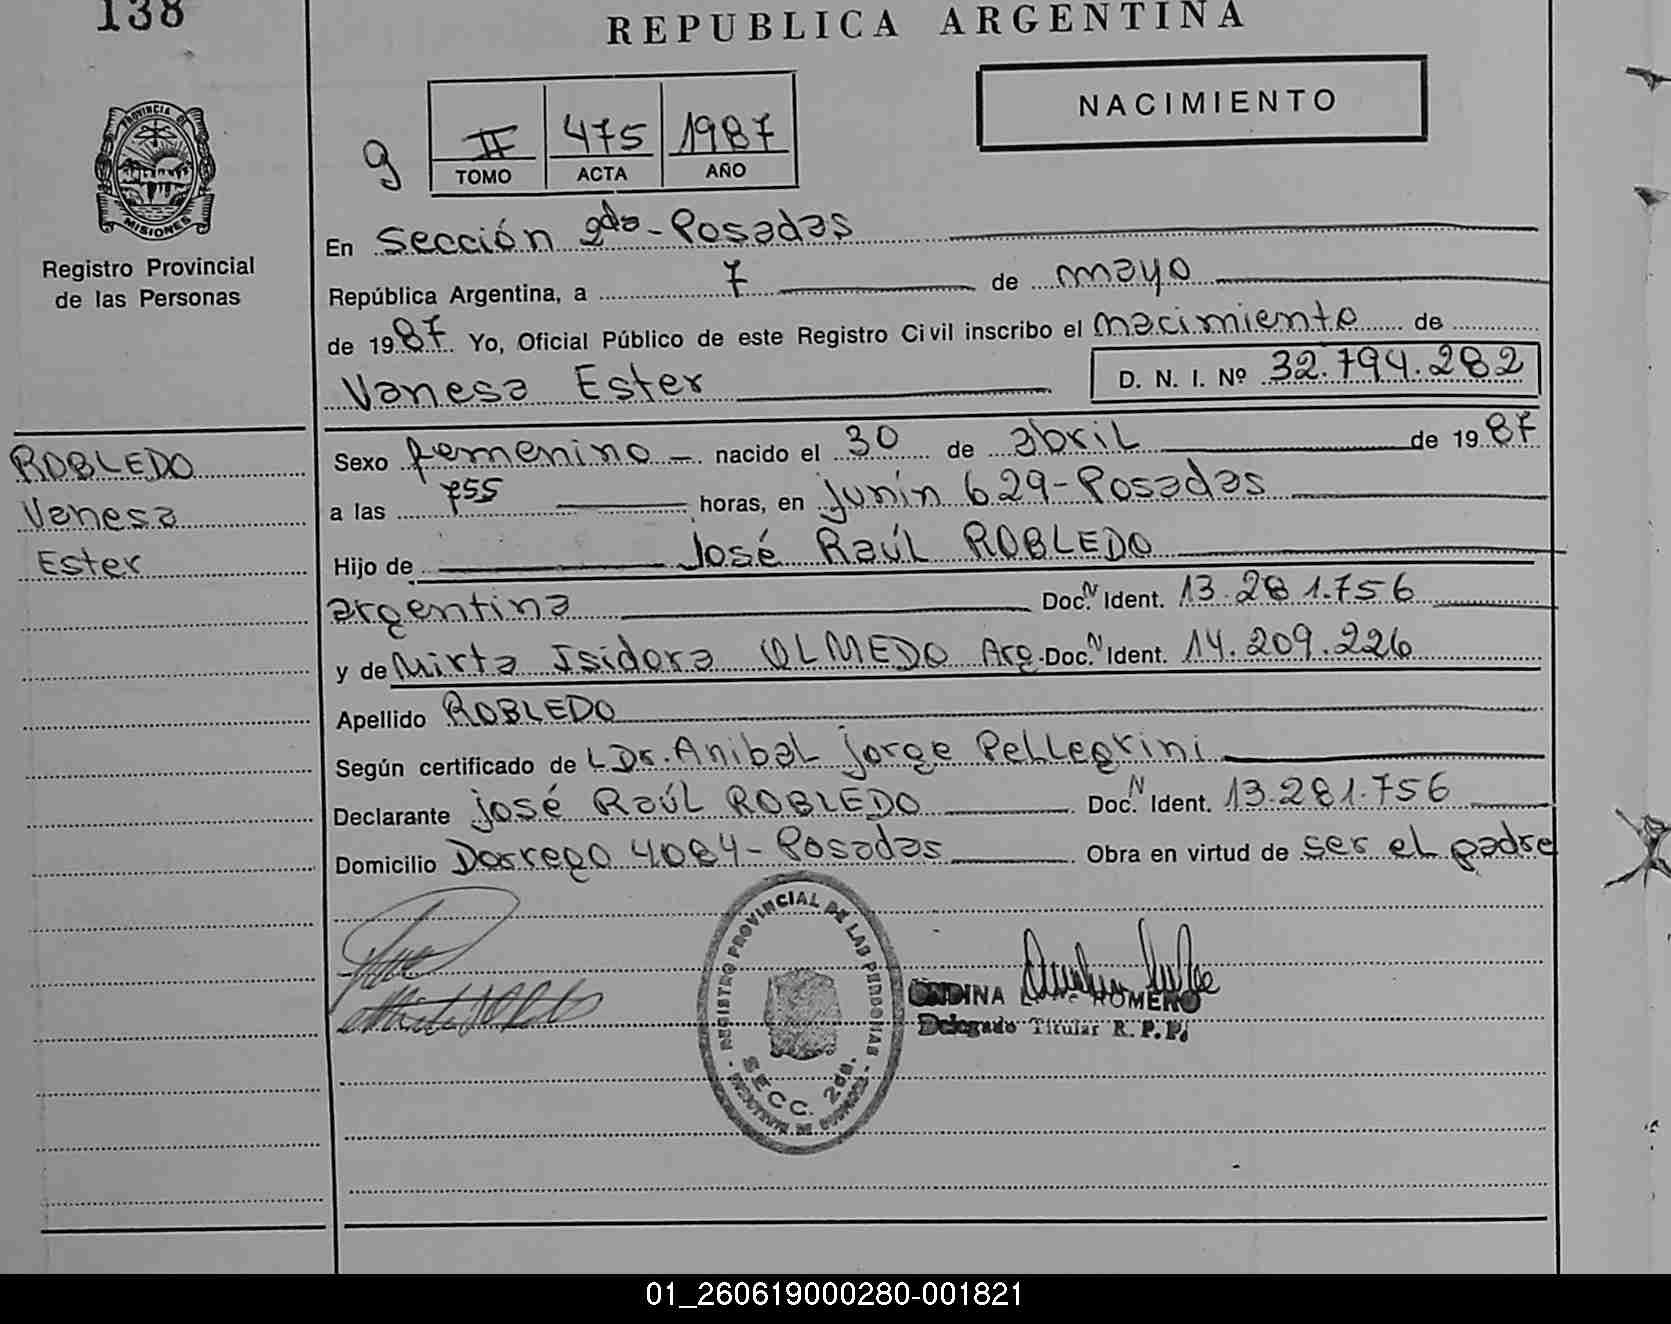 138
REPUBLICA ARGENTINA
NACIMIENTO
PROVINCIA DE
MISIONES
Registro Provincial
de las Personas
9
II 475 1987
TOMO ACTA AÑO
En Sección 2da-Posadas
República Argentina, a 7 de mayo
de 1987. Yo, Oficial Público de este Registro Civil inscribo el nacimiento de
Vanesa Ester D. N. I. Nº 32.794.282
ROBLEDO
Vanesa
Ester
Sexo femenino - nacido el 30 de abril de 1987
a las 755 horas, en Junín 629-Posadas
Hijo de José Raúl ROBLEDO
argentina Doc. N Ident. 13.281.756
y de Mirta Isidora OLMEDO Arg. Doc. N Ident. 14.209.226
Apellido ROBLEDO
Según certificado de L Dr. Anibal Jorge Pellegrini
Declarante José Raúl ROBLEDO Doc. N Ident. 13.281.756
Domicilio Dorrego 4084-Posadas Obra en virtud de ser el padre
REGISTRO PROVINCIAL DE LAS PERSONAS
SECC. 2da.
ONDINA ROMERO
Delegado Titular R. P. P.
01_260619000280-001821